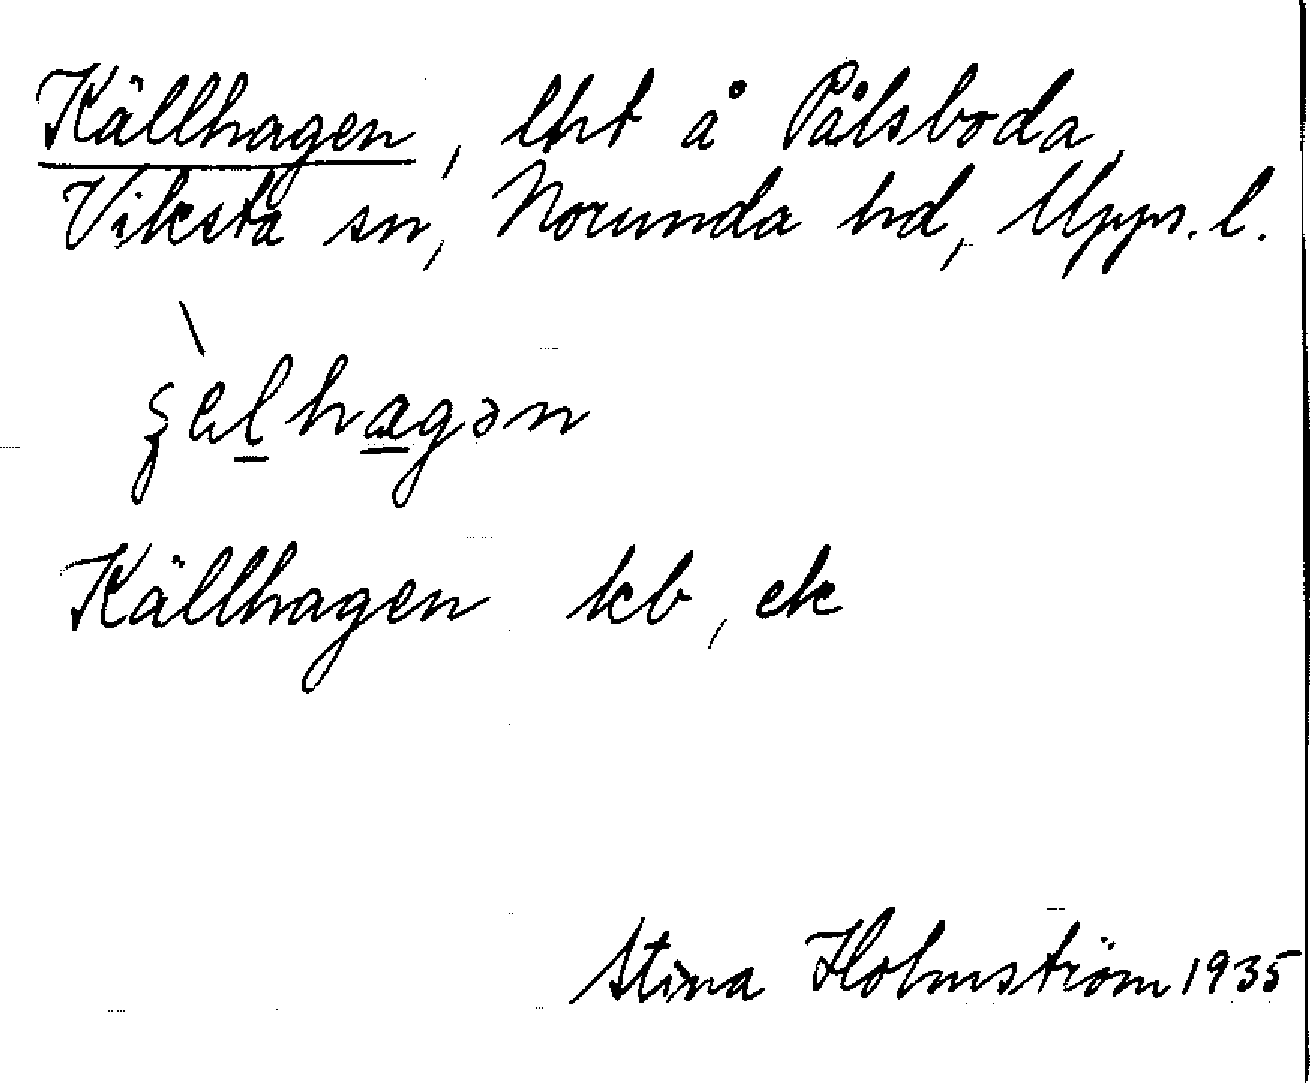 Källhagen, lht å Pålsboda,
Viksta sn, Norunda hd, Upps. l.
Källhagen kb, ek
Stina Holmström 1935